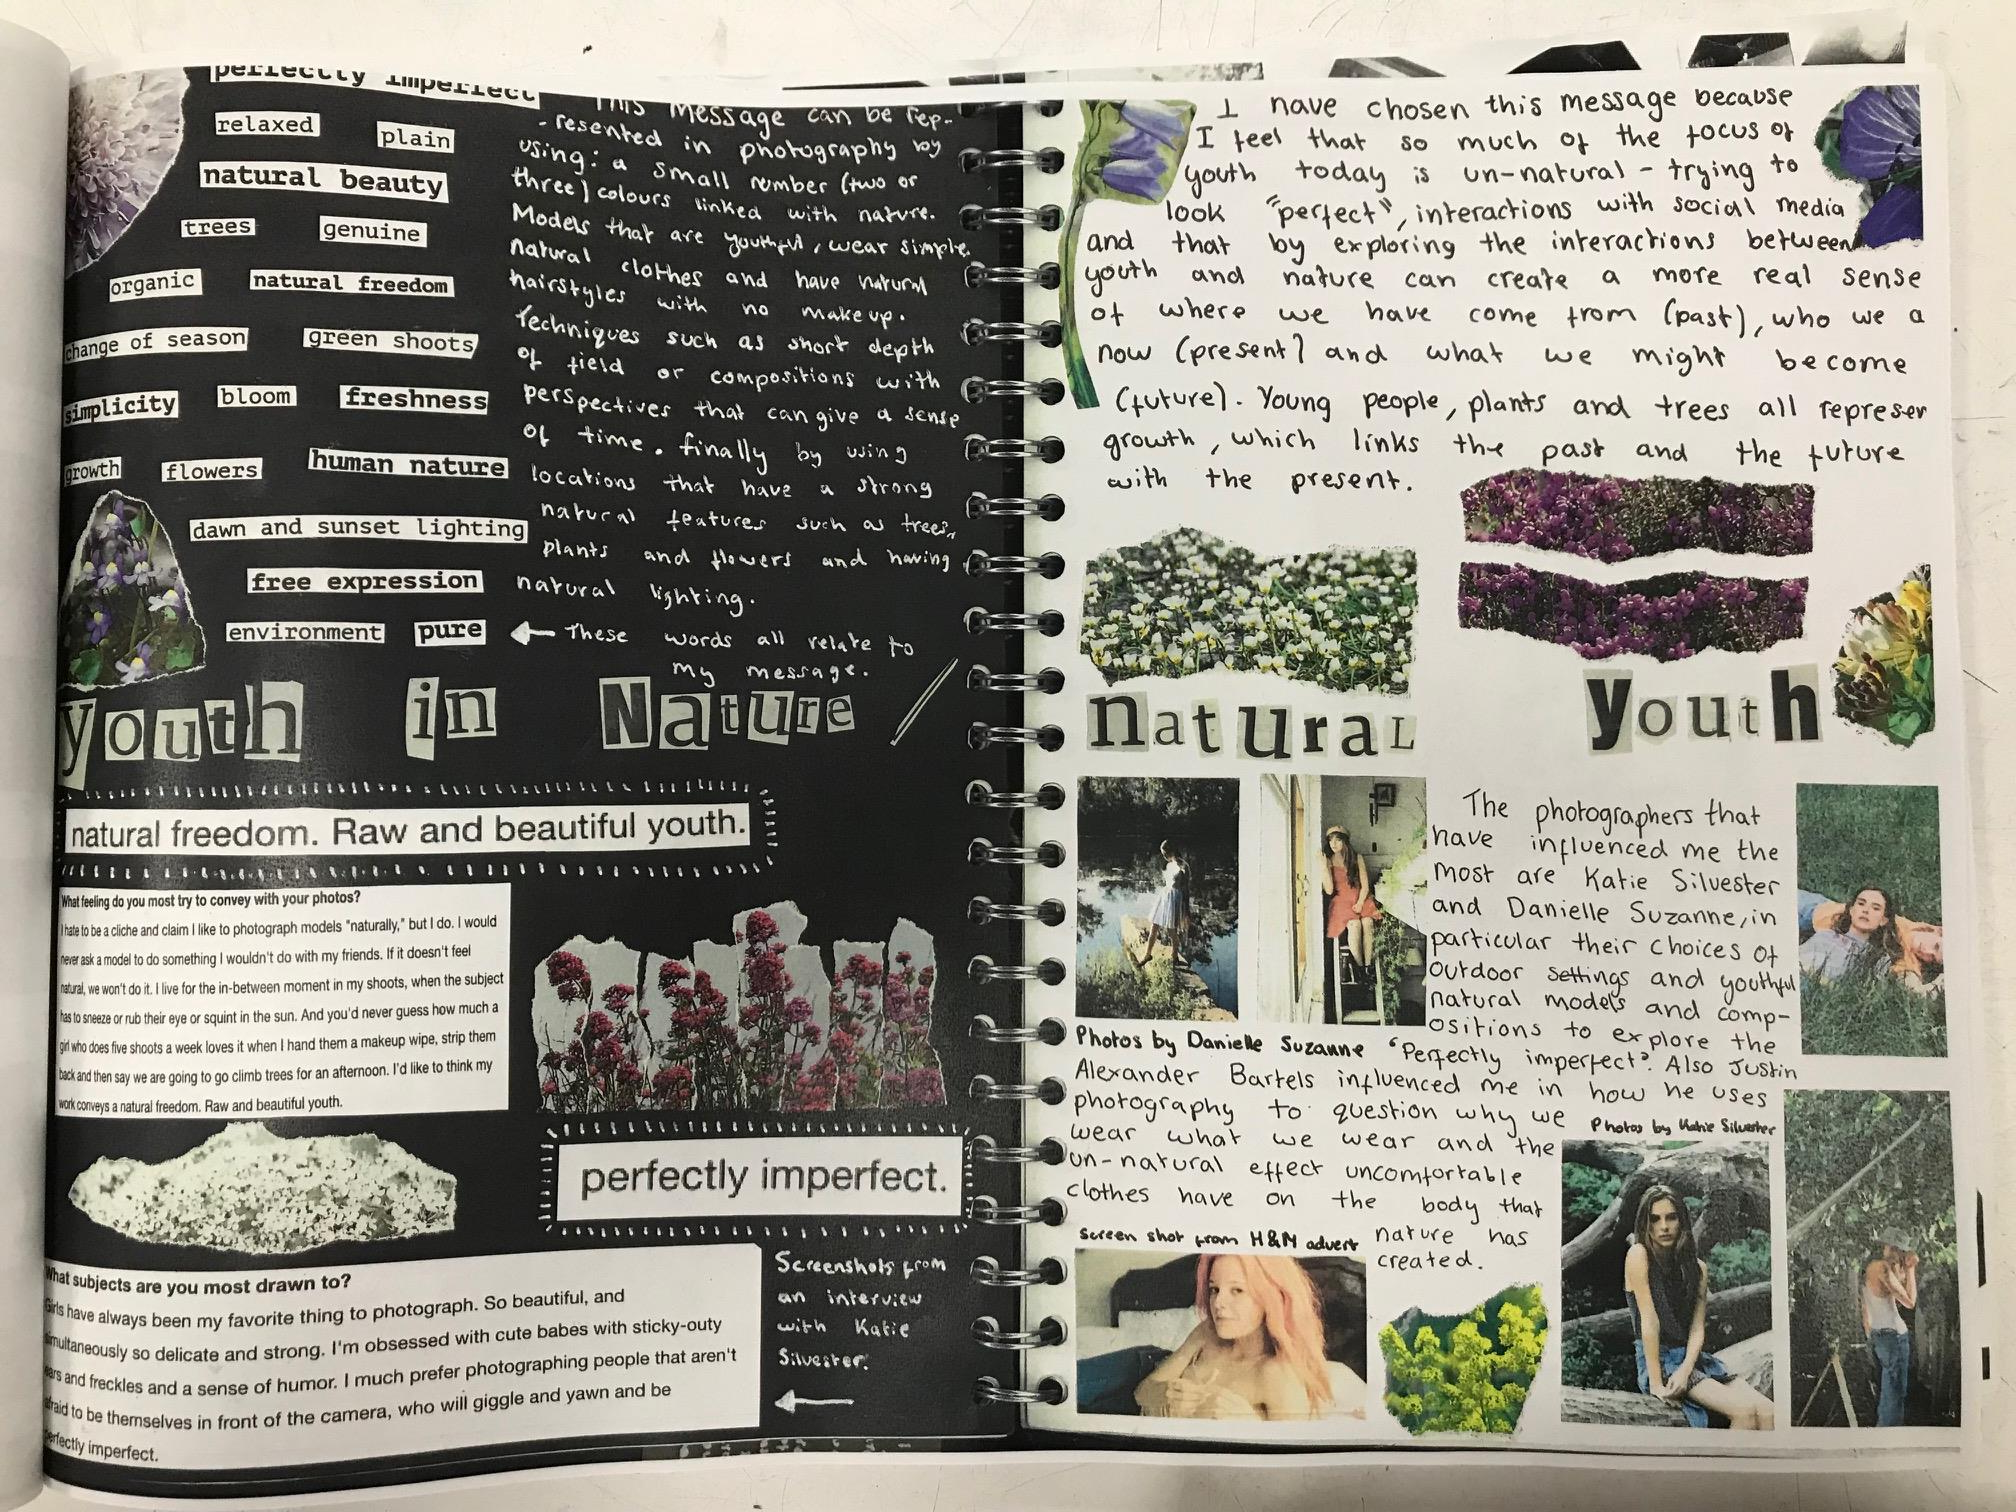 perfectly imperfect
relaxed plain
natural beauty
trees genuine
organic natural freedom
change of season green shoots
simplicity bloom freshness
growth flowers human nature
dawn and sunset lighting
free expression
environment pure
This message can be rep-
resented in photography by
using: a small number (two or
three) colours linked with nature.
Models that are youthful, wear simple
natural clothes and have natural
hairstyles with no makeup.
Techniques such as short depth
of field or compositions with
perspectives that can give a sense
of time. finally by using
locations that have a strong
natural features such as trees,
plants and flowers and having
natural lighting.
← These words all relate to
my message.
youth in Nature
natural freedom. Raw and beautiful youth.
What feeling do you most try to convey with your photos?
I hate to be a cliche and claim I like to photograph models "naturally," but I do. I would
never ask a model to do something I wouldn't do with my friends. If it doesn't feel
natural, we won't do it. I live for the in-between moment in my shoots, when the subject
has to sneeze or rub their eye or squint in the sun. And you'd never guess how much a
girl who does five shoots a week loves it when I hand them a makeup wipe, strip them
back and then say we are going to go climb trees for an afternoon. I'd like to think my
work conveys a natural freedom. Raw and beautiful youth.
perfectly imperfect.
What subjects are you most drawn to?
Girls have always been my favorite thing to photograph. So beautiful, and
simultaneously so delicate and strong. I'm obsessed with cute babes with sticky-outy
ears and freckles and a sense of humor. I much prefer photographing people that aren't
afraid to be themselves in front of the camera, who will giggle and yawn and be
perfectly imperfect.
Screenshots from
an interview
with Katie
Silvester.
I have chosen this message because
I feel that so much of the focus of
youth today is un-natural - trying to
look "perfect", interactions with social media
and that by exploring the interactions between
youth and nature can create a more real sense
of where we have come from (past), who we a
now (present) and what we might become
(future). Young people, plants and trees all represen
growth, which links the past and the future
with the present.
natural youth
The photographers that
have influenced me the
most are Katie Silvester
and Danielle Suzanne, in
particular their choices of
outdoor settings and youthful
natural models and comp-
ositions to explore the
Photos by Danielle Suzanne
'Perfectly imperfect'. Also Justin
Alexander Bartels influenced me in how he uses
photography to question why we
wear what we wear and the
un-natural effect uncomfortable
clothes have on the body that
nature has
created.
Photos by Katie Silvester
Screen shot from H&M advert